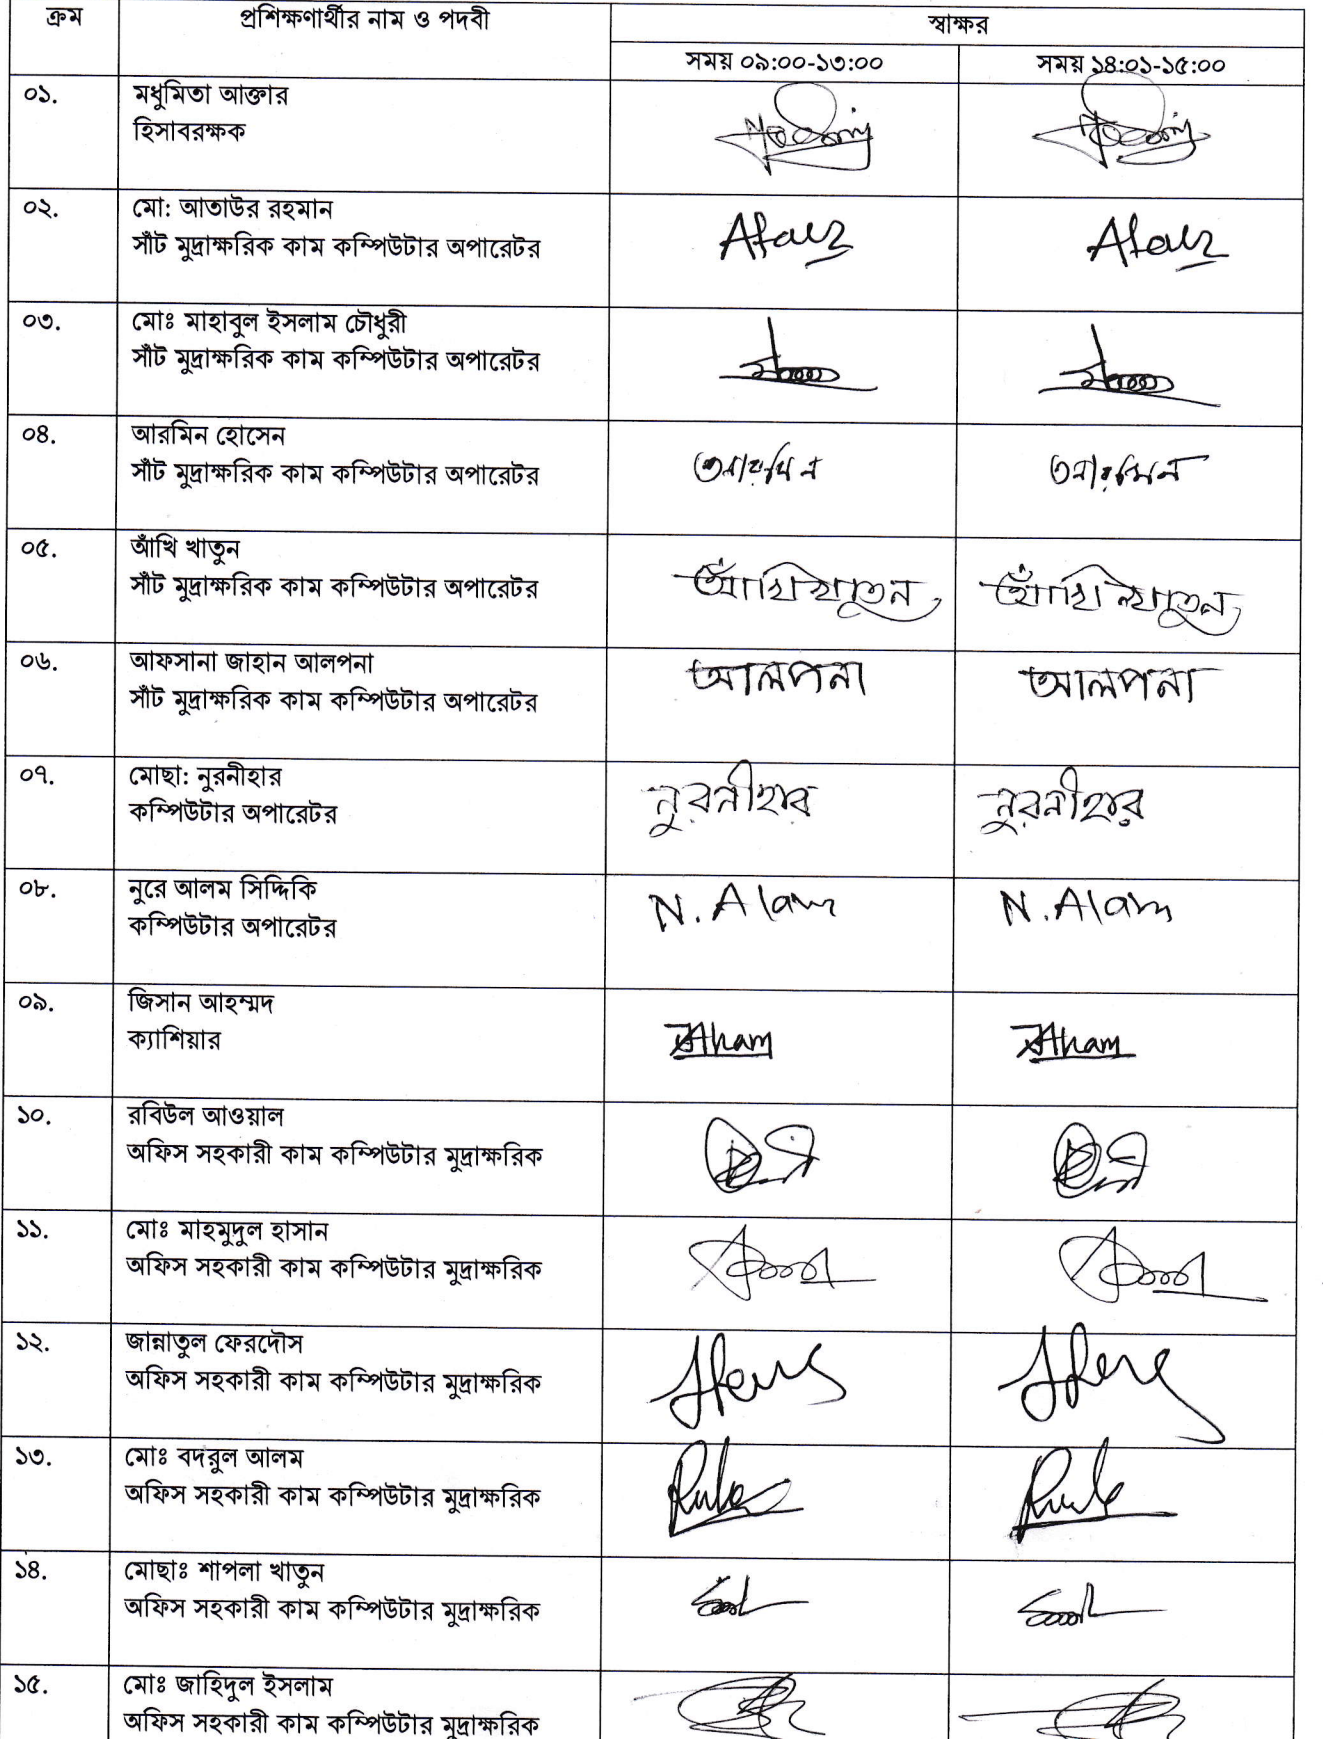 ক্রম প্রশিক্ষণার্থীর নাম ও পদবী স্বাক্ষর
সময় ০৯:০০-১৩:০০ সময় ১৪:০১-১৫:০০
০১. মধুমিতা আক্তার
হিসাবরক্ষক
০২. মো: আতাউর রহমান
সাঁট মুদ্রাক্ষরিক কাম কম্পিউটার অপারেটর
০৩. মোঃ মাহাবুল ইসলাম চৌধুরী
সাঁট মুদ্রাক্ষরিক কাম কম্পিউটার অপারেটর
০৪. আরমিন হোসেন
সাঁট মুদ্রাক্ষরিক কাম কম্পিউটার অপারেটর আরমিন আরমিন
০৫. আঁখি খাতুন
সাঁট মুদ্রাক্ষরিক কাম কম্পিউটার অপারেটর আঁখি খাতুন আঁখি খাতুন
০৬. আফসানা জাহান আলপনা আলপনা আলপনা
সাঁট মুদ্রাক্ষরিক কাম কম্পিউটার অপারেটর
০৭. মোছা: নুরনীহার নুরনীহার নুরনীহার
কম্পিউটার অপারেটর
০৮. নুরে আলম সিদ্দিকি N. Alam N. Alam
কম্পিউটার অপারেটর
০৯. জিসান আহম্মদ
ক্যাশিয়ার
১০. রবিউল আওয়াল
অফিস সহকারী কাম কম্পিউটার মুদ্রাক্ষরিক
১১. মোঃ মাহমুদুল হাসান
অফিস সহকারী কাম কম্পিউটার মুদ্রাক্ষরিক
১২. জান্নাতুল ফেরদৌস
অফিস সহকারী কাম কম্পিউটার মুদ্রাক্ষরিক
১৩. মোঃ বদরুল আলম
অফিস সহকারী কাম কম্পিউটার মুদ্রাক্ষরিক
১৪. মোছাঃ শাপলা খাতুন
অফিস সহকারী কাম কম্পিউটার মুদ্রাক্ষরিক
১৫. মোঃ জাহিদুল ইসলাম
অফিস সহকারী কাম কম্পিউটার মুদ্রাক্ষরিক